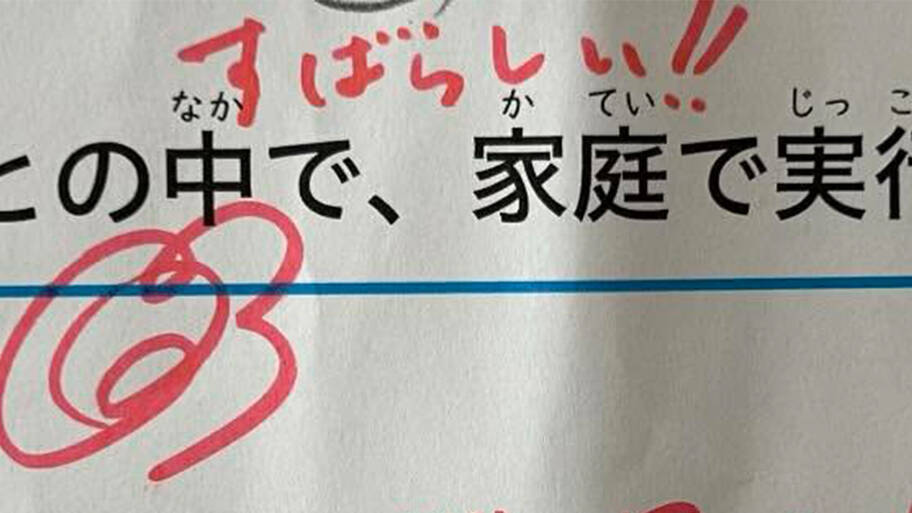 すばらしい!!
なか か てい じっ こ
との中で、家庭で実行